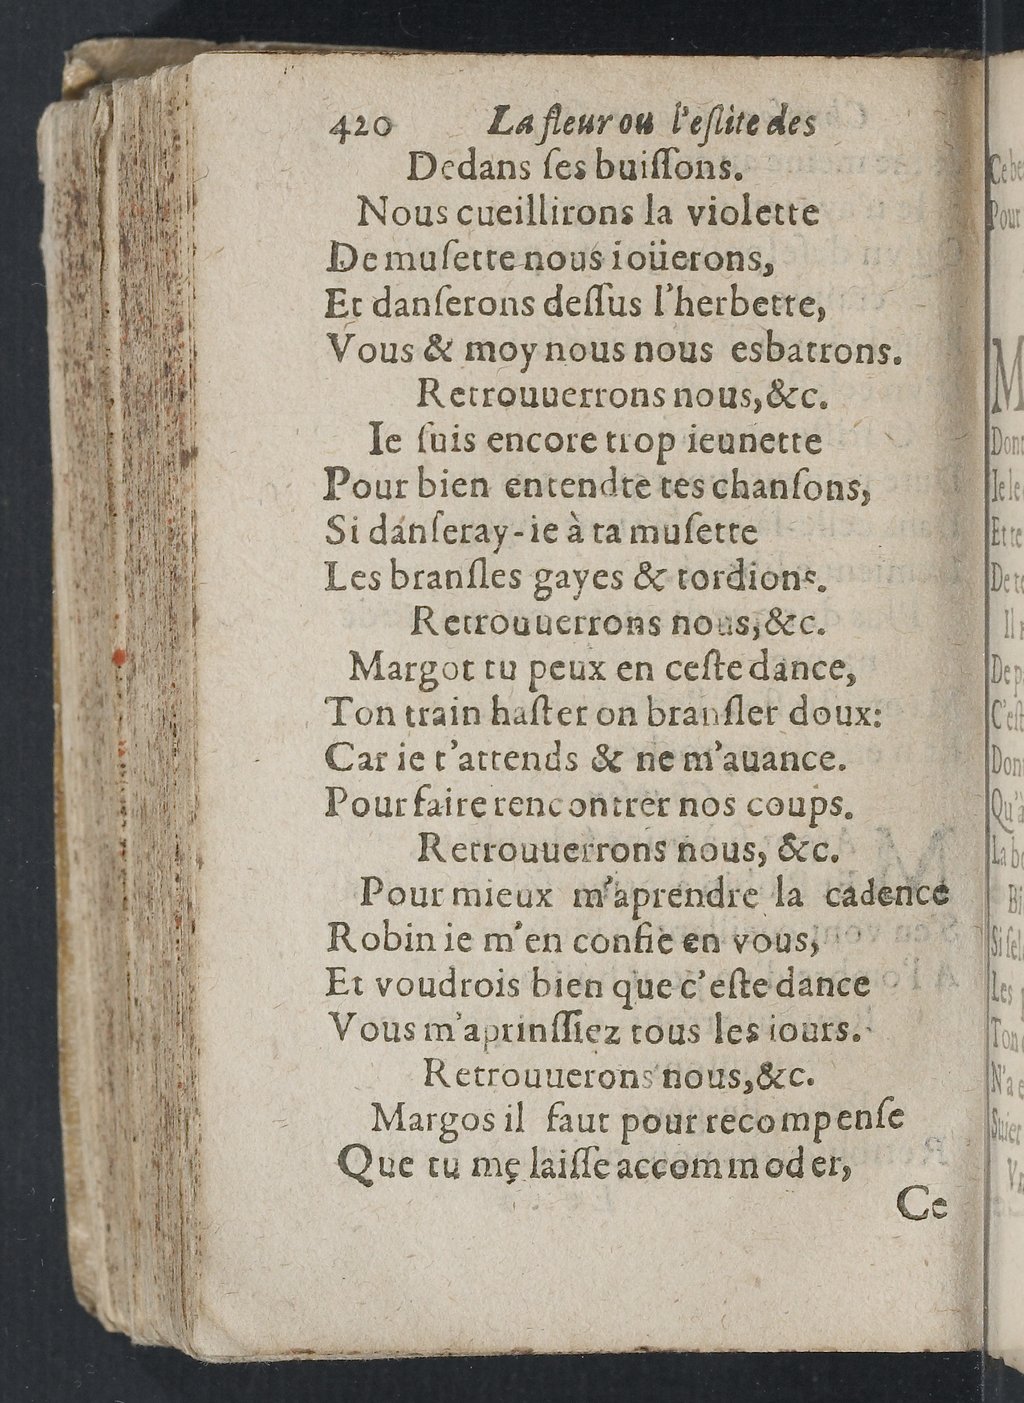 420 La fleur ou l'eſlite des
Dedans ſes buiſſons.
Nous cueillirons la violette
De muſette nous ioüerons,
Et danſerons deſſus l'herbette,
Vous & moy nous nous esbatrons.
Retrouuerrons nous, &c.
Ie ſuis encore trop ieunette
Pour bien entendte tes chanſons,
Si danſeray-ie à ta muſette
Les branſles gayes & tordions.
Retrouuerrons nous, &c.
Margot tu peux en ceſte dance,
Ton train haſter on branſler doux:
Car ie t'attends & ne m'auance.
Pour faire rencontrer nos coups.
Retrouuerrons nous, &c.
Pour mieux m'aprendre la cadence
Robin ie m'en confie en vous,
Et voudrois bien que c'eſte dance
Vous m'aprinſſiez tous les iours.
Retrouuerons nous, &c.
Margos il faut pour recompenſe
Que tu me laiſſe accommoder,
Ce